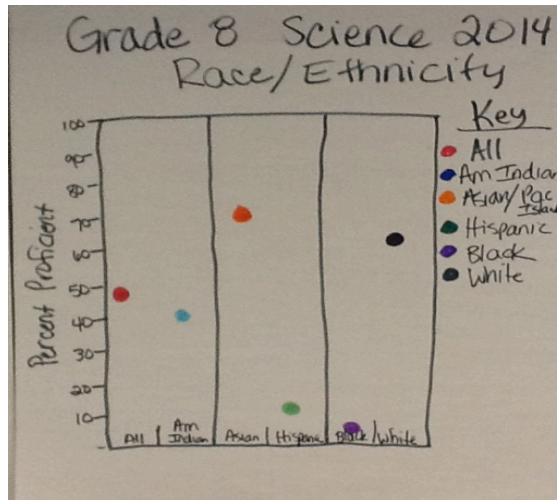 Grade 8 Science 2014
Race/Ethnicity
Key
All
Am Indian
Asian/Pac
Hispanic
Black
White
Percent Proficient
100
90
80
70
60
50
40
30
20
10
All
Am
Indian
Asian
Hispanic
Black
White